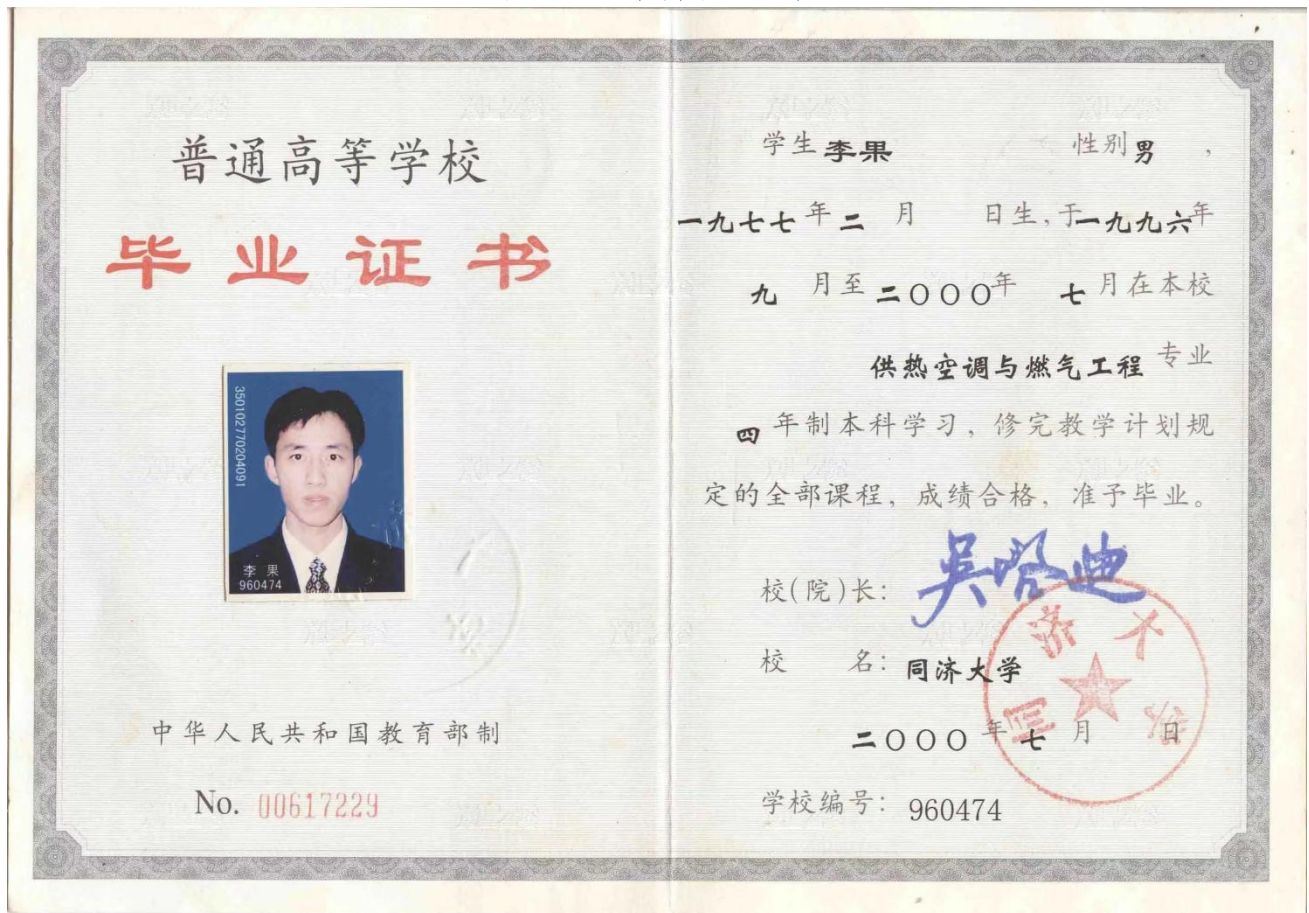 普通高等学校
毕业证书
350102770204091
李果
960474
中华人民共和国教育部制
No. 00617229
学生李果 性别男，
一九七七年二月 日生，于一九九六年
九月至二〇〇〇年七月在本校
供热空调与燃气工程专业
四年制本科学习，修完教学计划规
定的全部课程，成绩合格，准予毕业。
校(院)长：吴启迪
校 名：同济大学
二〇〇〇年七月 日
同济大学
学校编号：960474